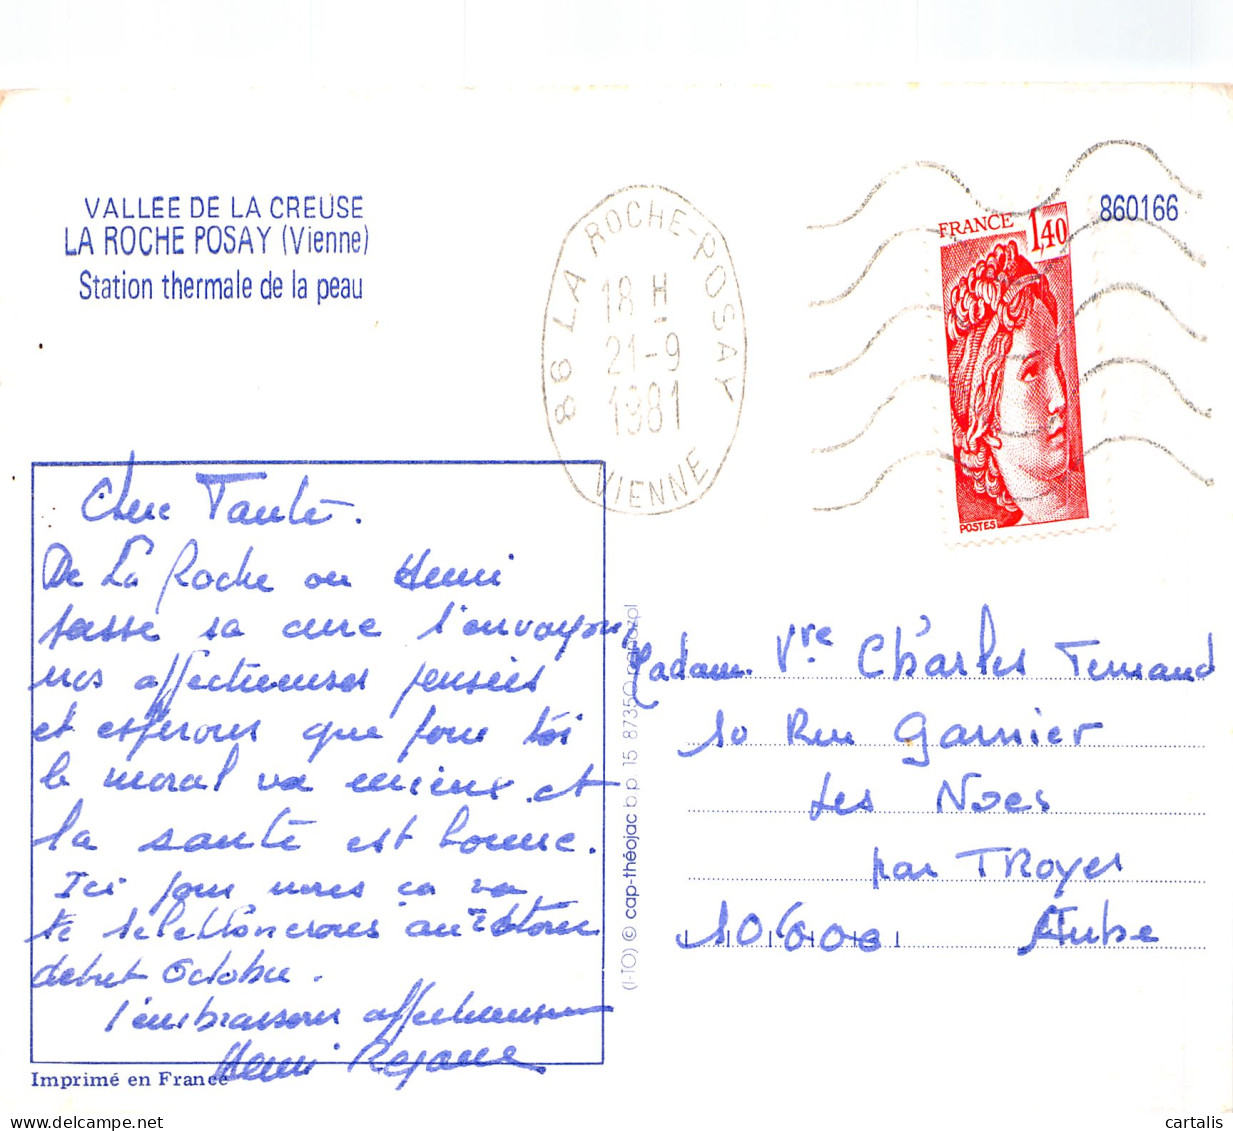 VALLEE DE LA CREUSE
LA ROCHE POSAY (Vienne)
Station thermale de la peau
86 LA ROCHE-POSAY
18 H
21-9
1981
VIENNE
FRANCE 1,40
POSTES
860166
Chere Tante.
De La Roche ou Henri
passe sa cure t'envoyons
nos affectueuses pensées
et esperons que pour toi
le moral va mieux et
la santé est bonne.
Ici pour nous ca va
te telephonerons au retour
debut Octobre.
t'embrassons affectueusement
Henri Rejane
Imprimé en France
(I-TO) © cap-théojac b.p. 15 87350 panazol
Madame Vve Charles Fernand
10 Rue Garnier
Les Noes
par TRoyes
10.600 Aube
cartalis